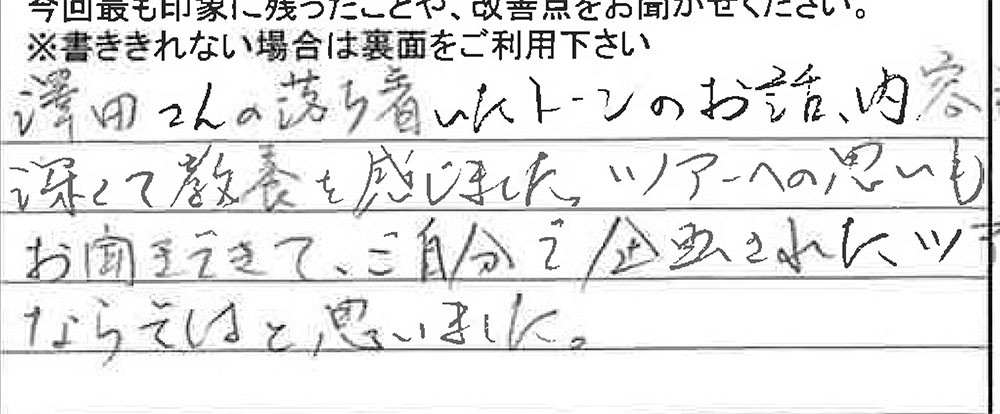 今回最も印象に残ったことや、改善点をお聞かせください。
※書ききれない場合は裏面をご利用下さい
澤田さんの落ち着いたトーンのお話、内容
深くて教養を感じました。ツアーへの思いも
お聞きできて、ご自分で企画されたツア
ならではと思いました。